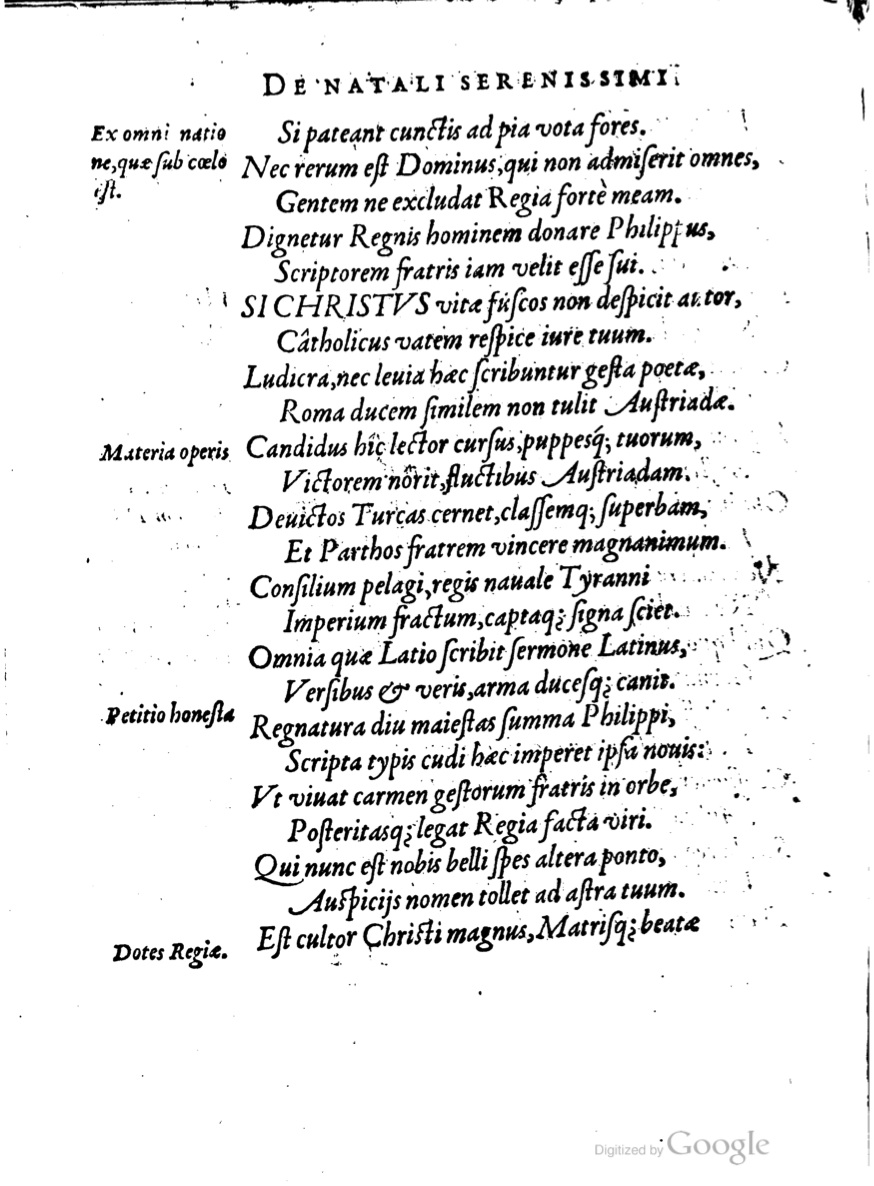 DE NATALI SERENISSIMI
Ex omni natio
ne, quæ sub cœlo
est.
Si pateant cunctis ad pia vota fores.
Nec rerum est Dominus, qui non admiserit omnes,
Gentem ne excludat Regia fortè meam.
Dignetur Regnis hominem donare Philippus,
Scriptorem fratris iam velit esse sui.
SI CHRISTVS vitæ fuscos non despicit autor,
Câtholicus vatem respice iure tuum.
Ludicra, nec leuia hæc scribuntur gesta poetæ,
Roma ducem similem non tulit Austriadæ.
Materia operis
Candidus hîc lector cursus, puppesq; tuorum,
Victorem nôrit, fluctibus Austriadam.
Deuictos Turcas cernet, classemq; superbam,
Et Parthos fratrem vincere magnanimum.
Consilium pelagi, regis nauale Tyranni
Imperium fractum, captaq; signa sciet.
Omnia quæ Latio scribit sermone Latinus,
Versibus & veris, arma ducesq; canit.
Petitio honesta
Regnatura diu maiestas summa Philippi,
Scripta typis cudi hæc imperet ipsa nouis:
Vt viuat carmen gestorum fratris in orbe,
Posteritasq; legat Regia facta viri.
Qui nunc est nobis belli spes altera ponto,
Auspicijs nomen tollet ad astra tuum.
Dotes Regiæ.
Est cultor Christi magnus, Matrisq; beatæ
Digitized by Google